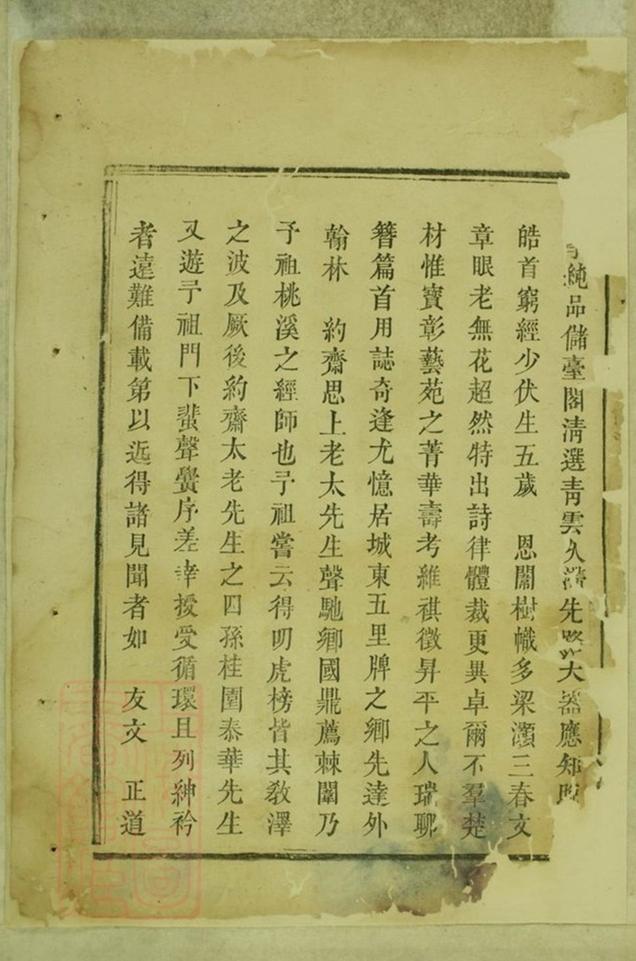 純品儲臺閣淸選靑雲久 先 大器應知
皓首窮經少伏生五歲 恩闈樹幟多梁灝三春文
章眼老無花超然特出詩律體裁更異卓爾不羣楚
材惟寶彰藝苑之菁華壽考維祺徵昇平之人瑞聊
簪篇首用誌奇逢尤憶居城東五里牌之鄉先達外
翰林 約齋思上老太先生聲馳鄉國鼎薦棘闈乃
予祖桃溪之經師也予祖嘗云得叨虎榜皆其教澤
之波及厥後約齋太老先生之四孫桂園泰華先生
又遊予祖門下蜚聲黌序差幸授受循環且列紳衿
者遠難備載第以近得諸見聞者如 友文 正道